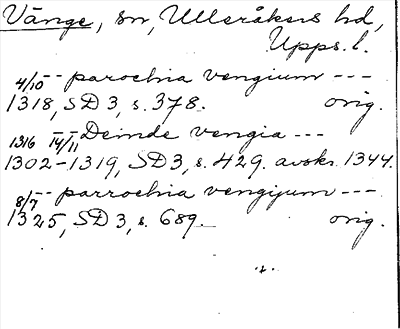 Vänge, sn, Ulleråkers hd,
Upps. l.
4/10 -- parochia vengium ---
1318, SD 3, s. 378. orig.
1316 14/11 Deinde vengia ---
1302-1319, SD 3, s. 429. avskr. 1344.
8/7 -- parrochia vengijum ---
1325, SD 3, s. 689. orig.